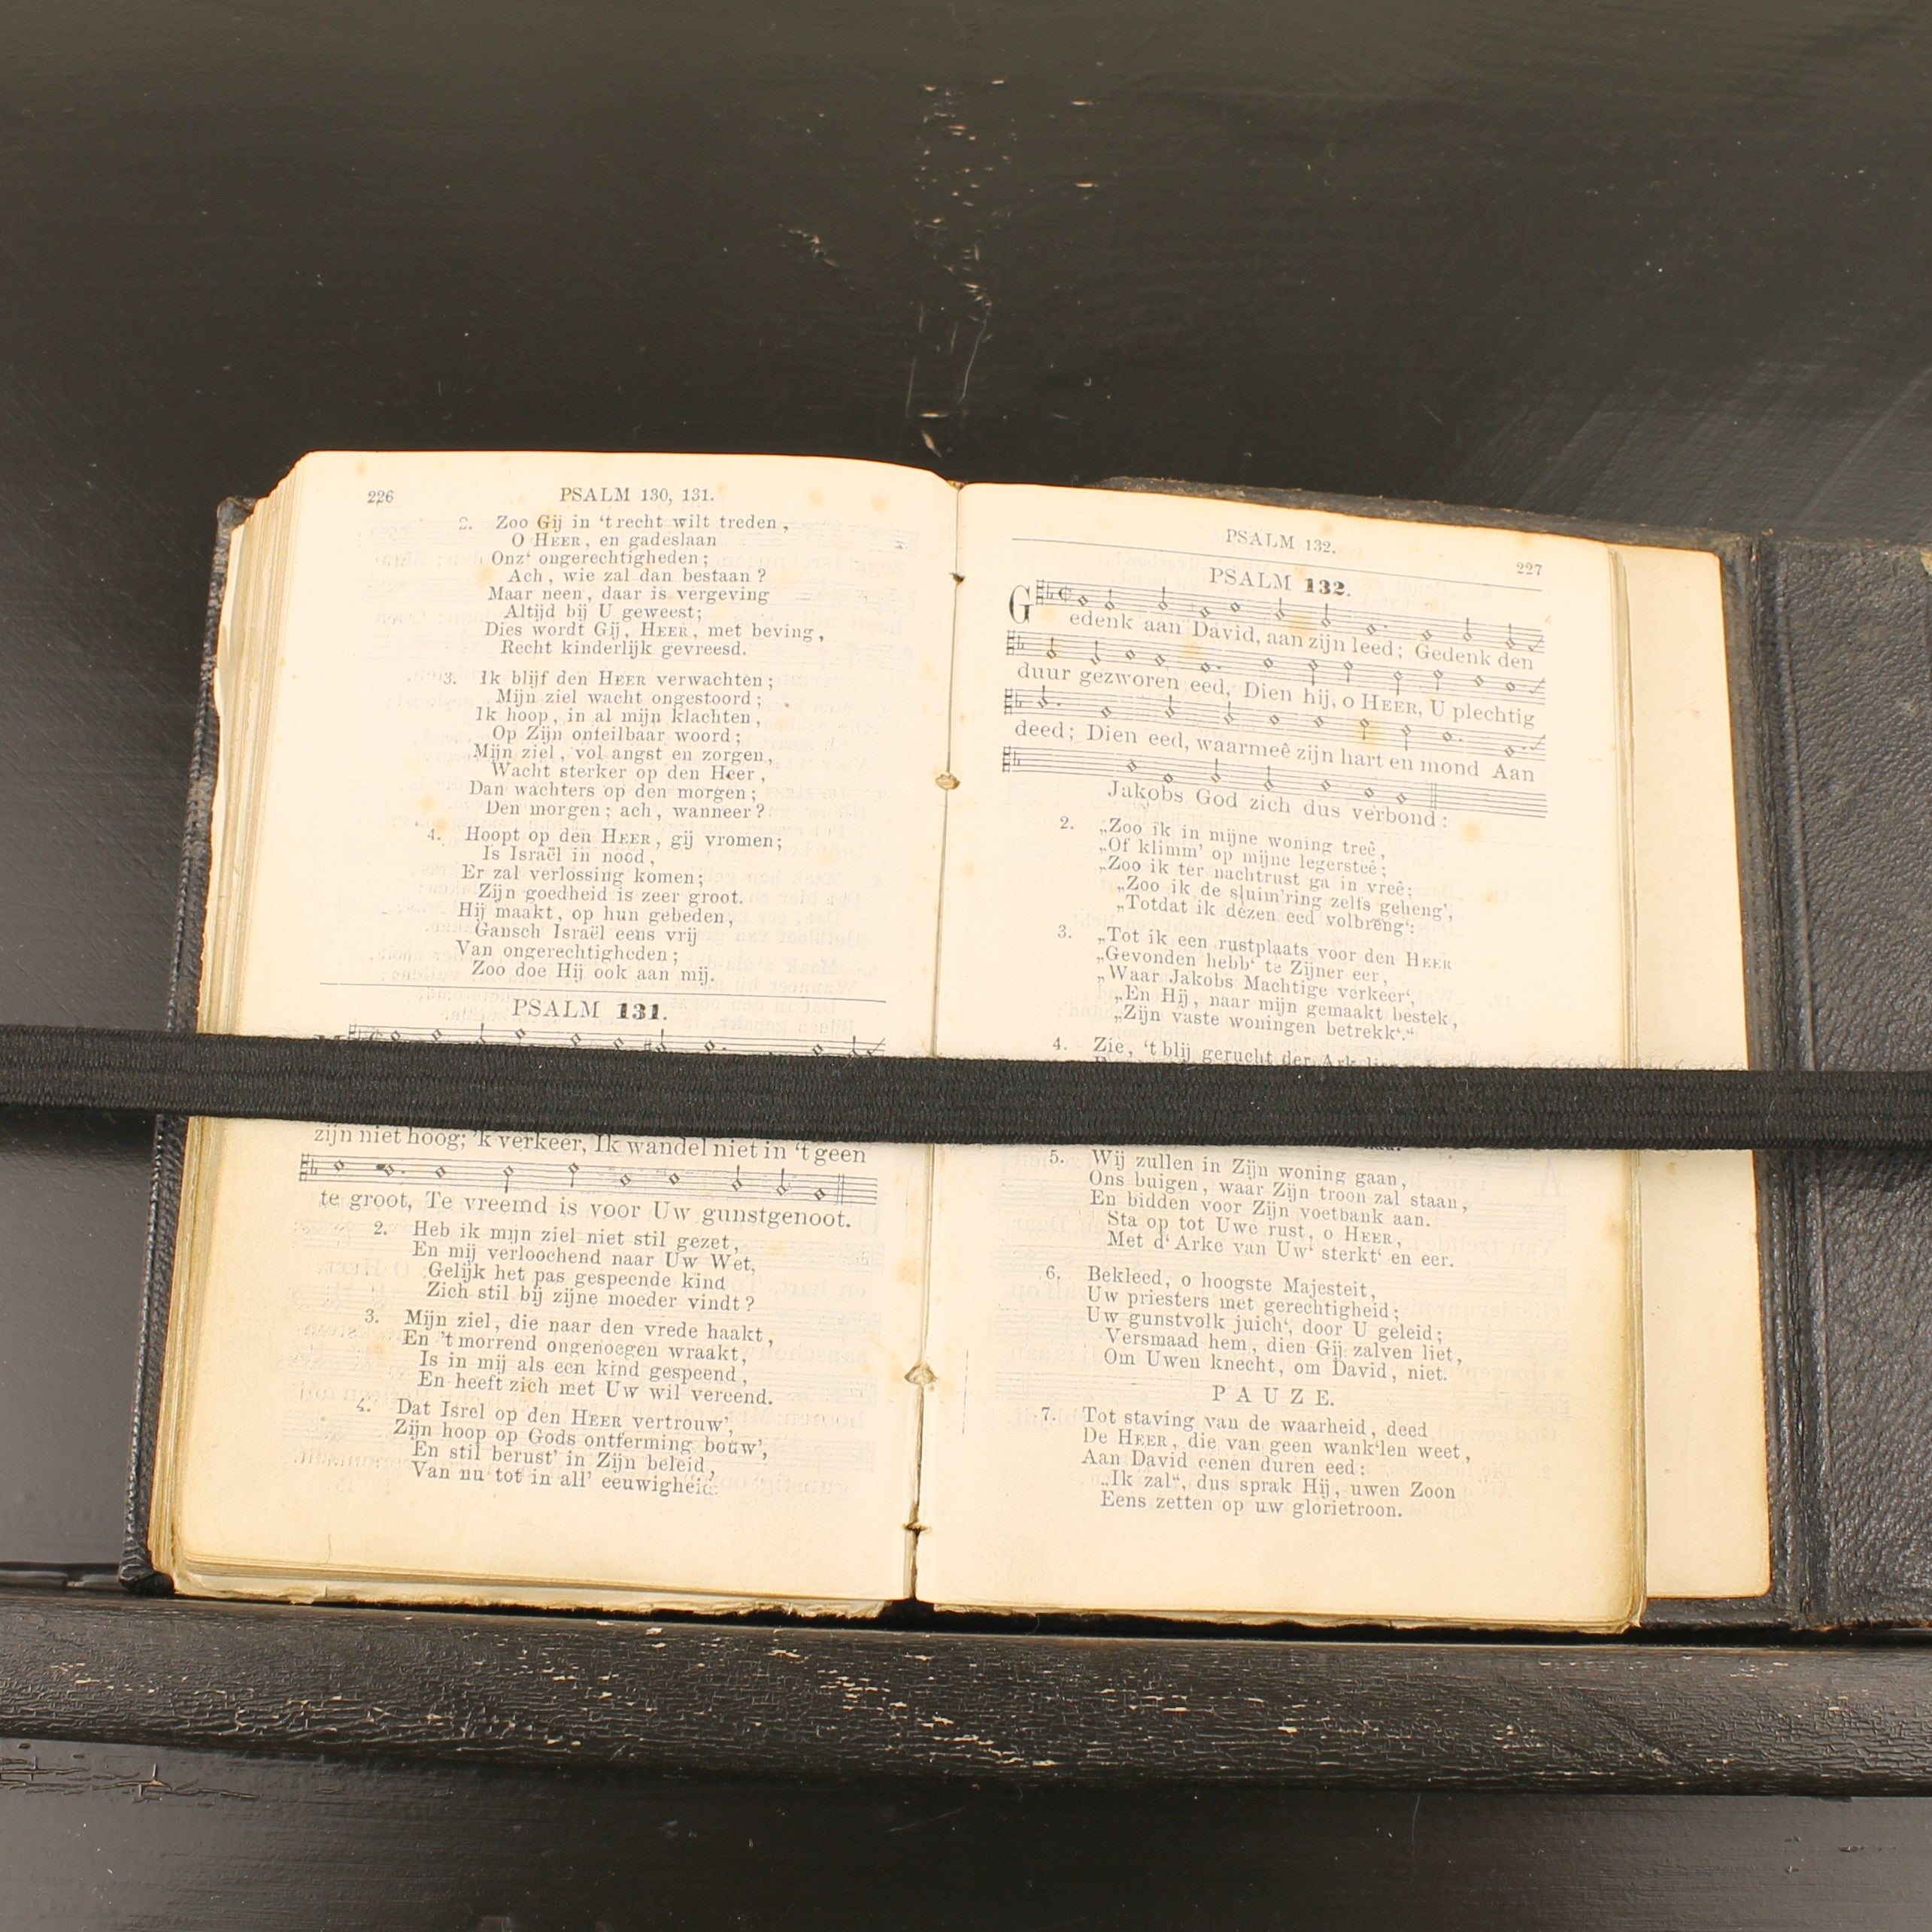 226
PSALM 130, 131.
2. Zoo Gij in ‘t recht wilt treden,
O HEER, en gadeslaan
Onz‘ ongerechtigheden;
Ach, wie zal dan bestaan?
Maar neen, daar is vergeving
Altijd bij U geweest;
Dies wordt Gij, HEER, met beving,
Recht kinderlijk gevreesd.
3. Ik blijf den HEER verwachten;
Mijn ziel wacht ongestoord;
Ik hoop, in al mijn klachten,
Op Zijn onfeilbaar woord;
Mijn ziel, vol angst en zorgen,
Wacht sterker op den Heer,
Dan wachters op den morgen;
Den morgen; ach, wanneer?
4. Hoopt op den HEER, gij vromen;
Is Israël in nood,
Er zal verlossing komen;
Zijn goedheid is zeer groot.
Hij maakt, op hun gebeden,
Gansch Israël eens vrij
Van ongerechtigheden;
Zoo doe Hij ook aan mij.
PSALM 131.
zijn niet hoog; ’k verkeer, Ik wandel niet in ‘t geen
te groot, Te vreemd is voor Uw gunstgenoot.
2. Heb ik mijn ziel niet stil gezet,
En mij verloochend naar Uw Wet,
Gelijk het pas gespeende kind
Zich stil bij zijne moeder vindt?
3. Mijn ziel, die naar den vrede haakt,
En ’t morrend ongenoegen wraakt,
Is in mij als een kind gespeend,
En heeft zich met Uw wil vereend.
4. Dat Isrel op den HEER vertrouw’,
Zijn hoop op Gods ontferming bouw’,
En stil berust’ in Zijn beleid,
Van nu tot in all’ eeuwigheid.
PSALM 132.
227
PSALM 132.
Gedenk aan David, aan zijn leed; Gedenk den
duur gezworen eed, Dien hij, o HEER, U plechtig
deed; Dien eed, waarmeê zijn hart en mond Aan
Jakobs God zich dus verbond:
2. „Zoo ik in mijne woning treê,
„Of klimm’ op mijne legersteê;
„Zoo ik ter nachtrust ga in vreê;
„Zoo ik de sluim’ring zelfs geheng’,
„Totdat ik dézen eed volbreng‘:
3. „Tot ik een rustplaats voor den HEER
„Gevonden hebb‘ te Zijner eer,
„Waar Jakobs Machtige verkeer‘,
„En Hij, naar mijn gemaakt bestek,
„Zijn vaste woningen betrekk‘.“
4. Zie, ‘t blij gerucht der Ark
5. Wij zullen in Zijn woning gaan,
Ons buigen, waar Zijn troon zal staan,
En bidden voor Zijn voetbank aan.
Sta op tot Uwe rust, o HEER,
Met d‘ Arke van Uw‘ sterkt‘ en eer.
6. Bekleed, o hoogste Majesteit,
Uw priesters met gerechtigheid;
Uw gunstvolk juich‘, door U geleid;
Versmaad hem, dien Gij zalven liet,
Om Uwen knecht, om David, niet.
PAUZE.
7. Tot staving van de waarheid, deed
De HEER, die van geen wank‘len weet,
Aan David eenen duren eed:
„Ik zal“, dus sprak Hij, uwen Zoon
Eens zetten op uw glorietroon.